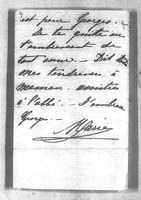 est pour Georges. -
Je te quitte en
t'embrassant de
tout coeur - Dis
mes tendresses à
maman, amitiés
à l'abbé. - J'embrasse
Georges. -
Marie